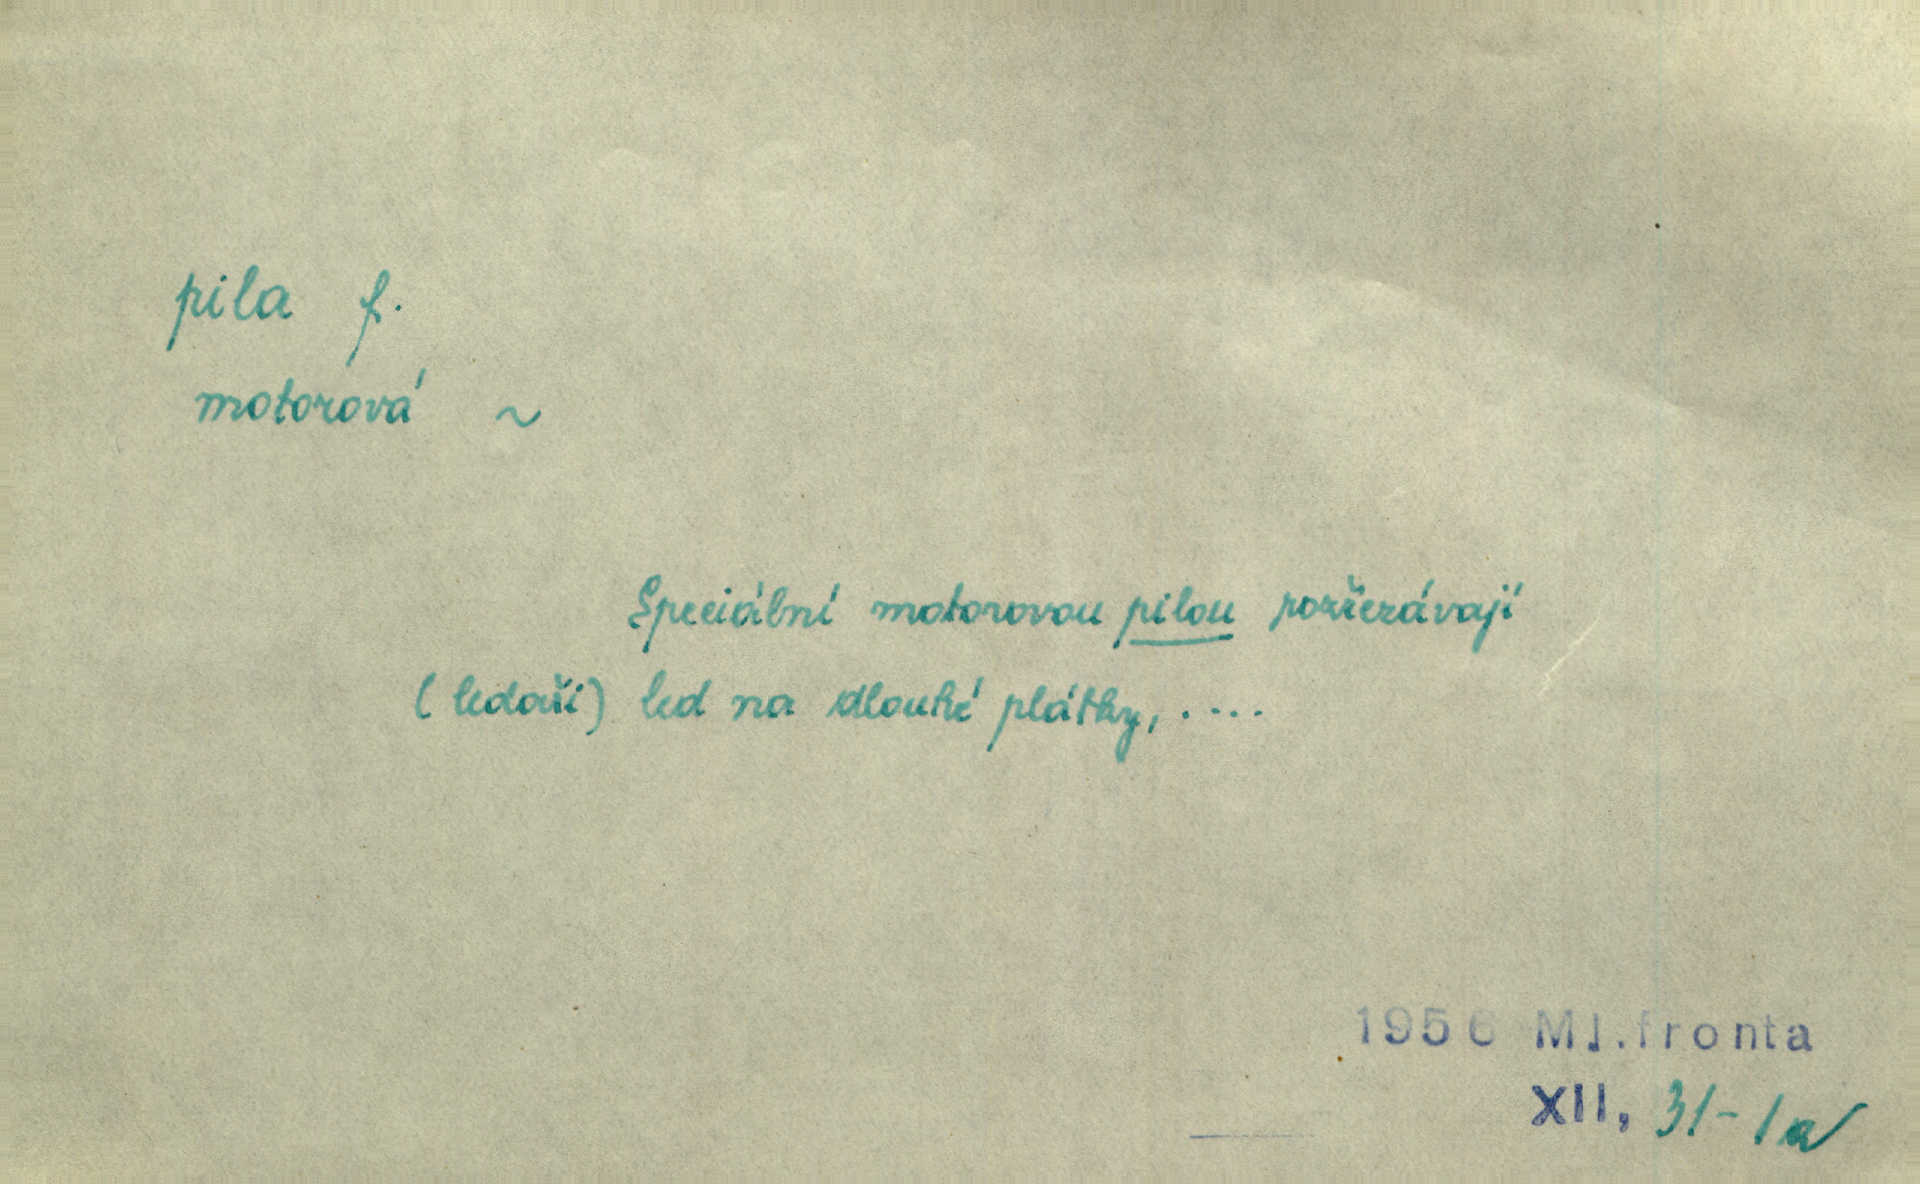 pila f.
motorová ~
Speciální motorovou pilou rozřezávají
(ledaři) led na dlouhé plátky, ....
1956 Ml.fronta
XII, 31-1a